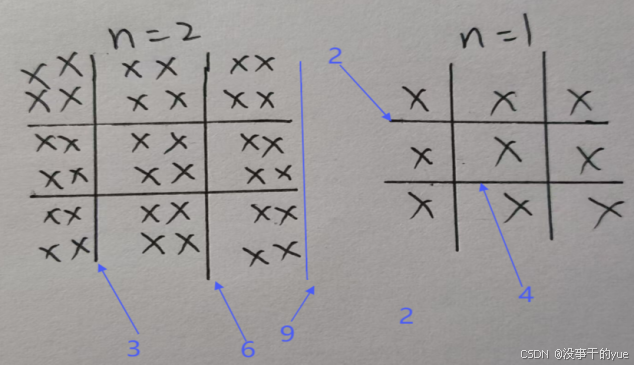 n=2
n=1
x x x x x x
x x x x x x
x x x x x x
x x x x x x
x x x x x x
x x x x x x
2
x x x
x x x
x x x
3
6
9
4
2
CSDN @没事干的yue